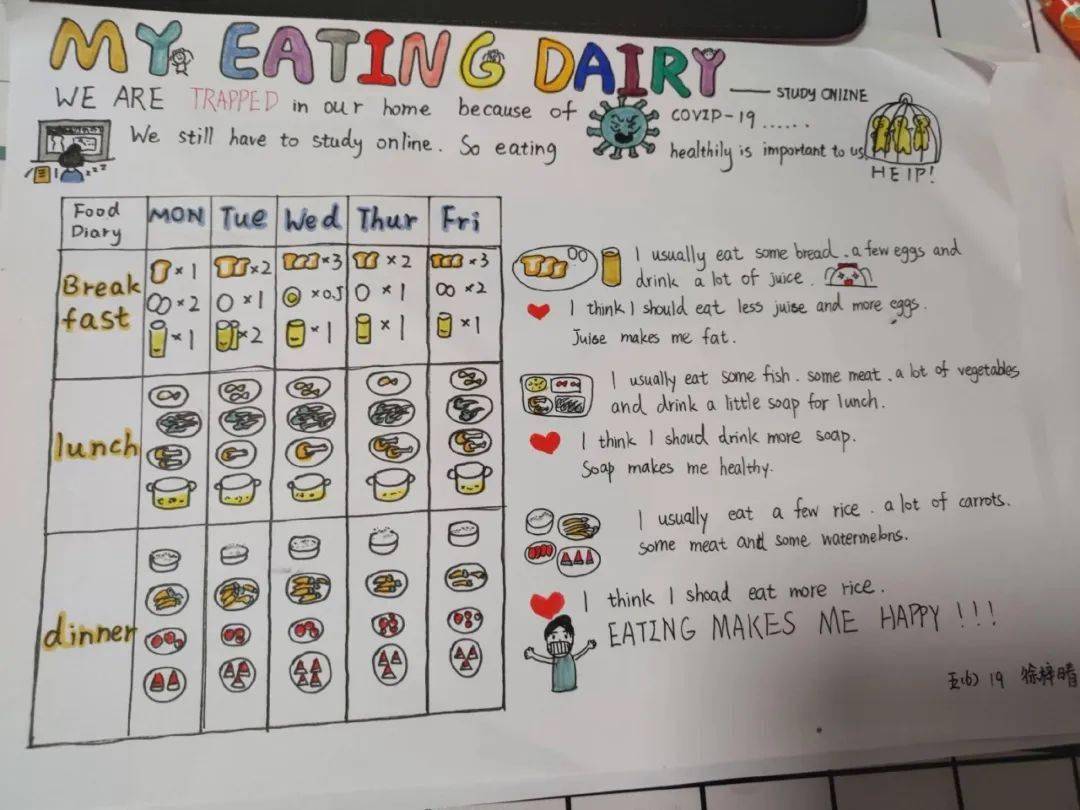 MY EATING DAIRY
—— STUDY ONIZNE
WE ARE TRAPPED in our home because of COVIP-19......
We still have to study online. So eating healthily is important to us.
HEIP!
Food Diary MON Tue Wed Thur Fri
Breakfast
×1 ×2 ×3 ×2 ×3
×2 ×1 ×0.5 ×1 ×2
×1 ×2 ×1 ×1 ×1
lunch
dinner
I usually eat some bread. a few eggs and
drink a lot of juice.
I think I should eat less juise and more eggs.
Juise makes me fat.
I usually eat some fish. some meat. a lot of vegetables
and drink a little soap for lunch.
I think I shoud drink more soap.
Soap makes me healthy.
I usually eat a few rice. a lot of carrots.
some meat and some watermelons.
I think I shoad eat more rice.
EATING MAKES ME HAPPY!!!
五(6) 19 徐梓晴